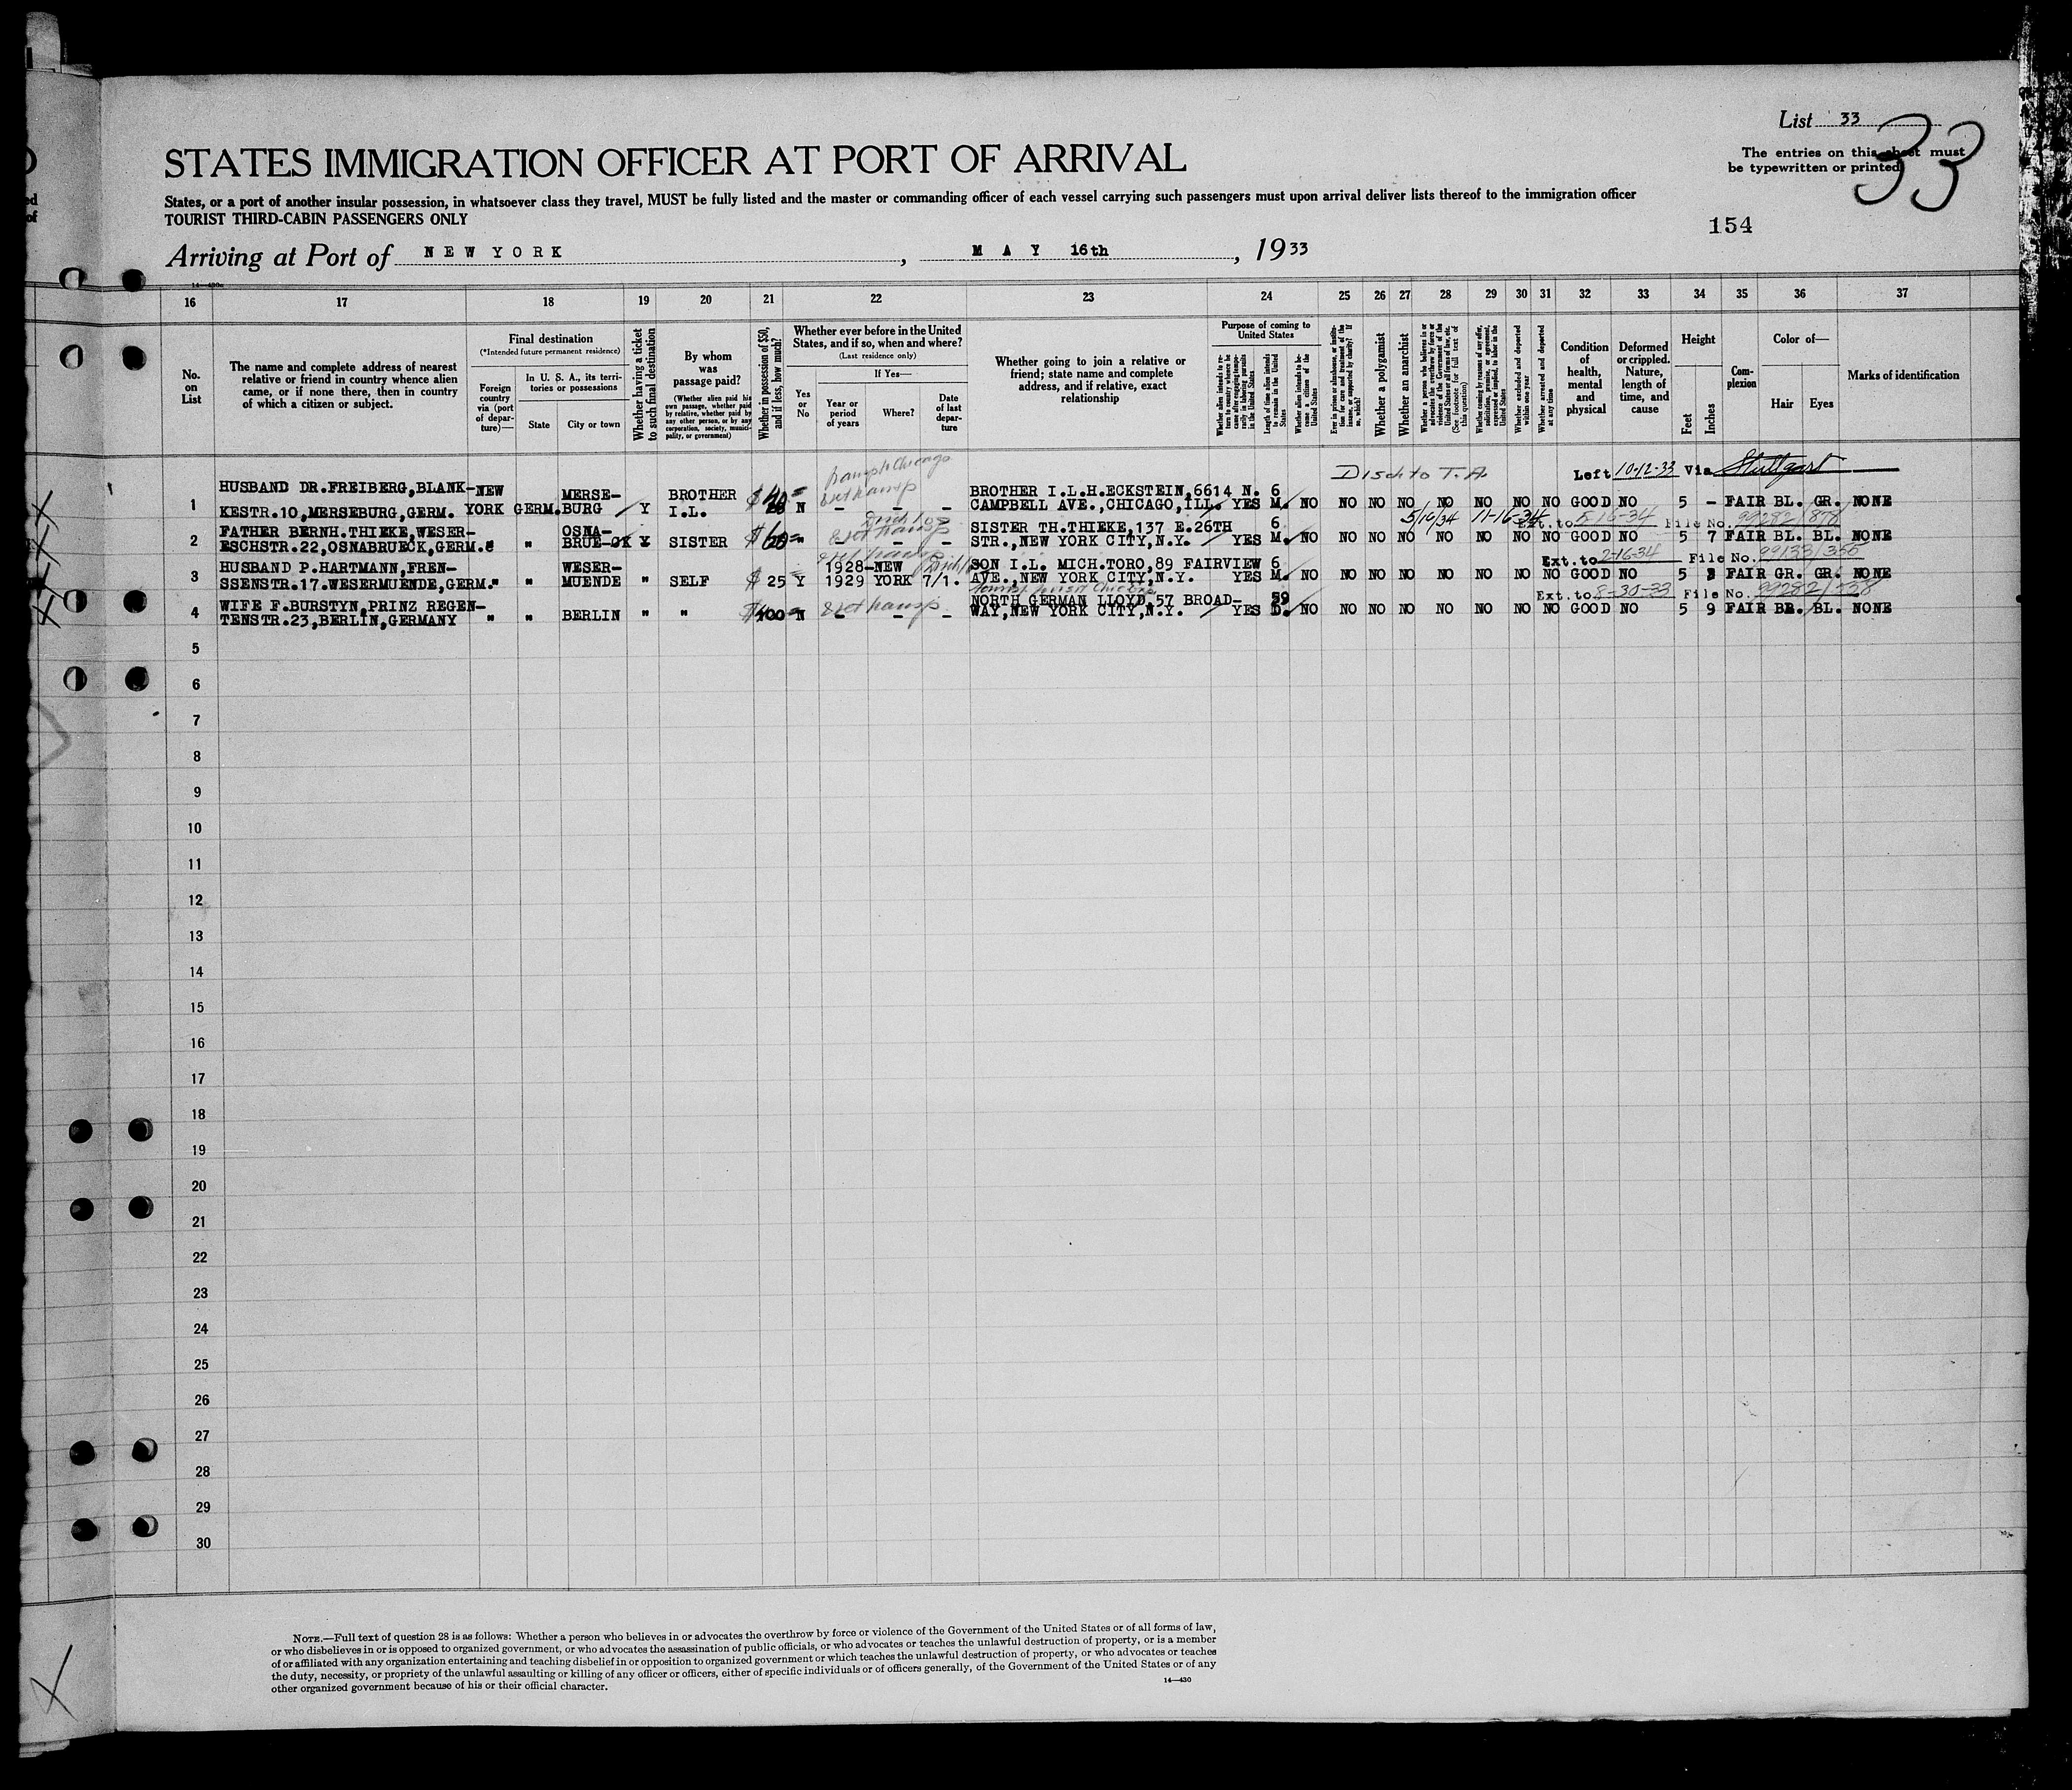 List 33
33
The entries on this sheet must
be typewritten or printed
STATES IMMIGRATION OFFICER AT PORT OF ARRIVAL
States, or a port of another insular possession, in whatsoever class they travel, MUST be fully listed and the master or commanding officer of each vessel carrying such passengers must upon arrival deliver lists thereof to the immigration officer
TOURIST THIRD-CABIN PASSENGERS ONLY
154
Arriving at Port of NEW YORK, MAY 16th, 1933
16 17 18 19 20 21 22 23 24 25 26 27 28 29 30 31 32 33 34 35 36 37
No. on List
The name and complete address of nearest
relative or friend in country whence alien
came, or if none there, then in country
of which a citizen or subject.
Final destination
(*Intended future permanent residence)
Foreign country via (port of departure)—
In U. S. A., its territories or possessions
State
City or town
Whether having a ticket to such final destination
By whom was passage paid?
(Whether alien paid his own passage, whether paid by relative, whether paid by any other person, or by any corporation, society, municipality, or government)
Whether in possession of $50, and if less, how much?
Whether ever before in the United
States, and if so, when and where?
(Last residence only)
Yes or No
If Yes—
Year or period of years
Where?
Date of last departure
Whether going to join a relative or
friend; state name and complete
address, and if relative, exact
relationship
Purpose of coming to United States
Whether alien intends to return to country whence he came after engaging temporarily in laboring pursuits in the United States
Length of time alien intends to remain in the United States
Whether alien intends to become a citizen of the United States
Ever in prison or almshouse, or institution for care and treatment of the insane, or supported by charity? If so, which?
Whether a polygamist
Whether an anarchist
Whether a person who believes in or advocates the overthrow by force or violence of the Government of the United States or all forms of law, etc. (See footnote for full text of this question)
Whether coming by reason of any offer, solicitation, promise, or agreement, expressed or implied, to labor in the United States
Whether excluded and deported within one year
Whether arrested and deported at any time
Condition of health, mental and physical
Deformed or crippled. Nature, length of time, and cause
Height
Feet
Inches
Complexion
Color of—
Hair
Eyes
Marks of identification
Disch to T.A.
Left 10-12-33 Via Stuttgart
1 HUSBAND DR.FREIBERG,BLANK- NEW MERSE- BROTHER $ BROTHER I.L.H.ECKSTEIN,6614 N. 6
KESTR.10,MERSEBURG,GERM. YORK GERM. BURG Y I.L. N - - - CAMPBELL AVE.,CHICAGO,ILL. YES M. NO NO NO NO NO NO NO NO GOOD NO 5 - FAIR BL. GR. NONE
5/16/34 11-16-34 Ext. to 5-16-34 File No. 99282/878
2 FATHER BERNH.THIEKE,WESER- OSNA- SISTER TH.THIEKE,137 E.26TH 6
ESCHSTR.22,OSNABRUECK,GERM. " " BRUECK Y SISTER $ " - - STR.,NEW YORK CITY,N.Y. YES M. NO NO NO NO NO NO NO NO GOOD NO 5 7 FAIR BL. BL. NONE
Ext. to 2-16-34 File No. 99133/
3 HUSBAND P.HARTMANN,FREN- WESER- 1928- NEW SON I.L. MICH.TORO,89 FAIRVIEW 6
SSENSTR.17.WESERMUENDE,GERM. " " MUENDE " SELF $ 25 Y 1929 YORK 7/1. AVE.,NEW YORK CITY,N.Y. YES M. NO NO NO NO NO NO NO NO GOOD NO 5 FAIR GR. GR. NONE
Ext. to 8-30-33 File No. 99282/
4 WIFE F.BURSTYN,PRINZ REGEN- NORTH GERMAN LLOYD,57 BROAD- 59
TENSTR.23,BERLIN,GERMANY " " BERLIN " " $400 N - - - WAY,NEW YORK CITY,N.Y. YES D. NO NO NO NO NO NO NO NO GOOD NO 5 9 FAIR BR. BL. NONE
5
6
7
8
9
10
11
12
13
14
15
16
17
18
19
20
21
22
23
24
25
26
27
28
29
30
NOTE.—Full text of question 28 is as follows: Whether a person who believes in or advocates the overthrow by force or violence of the Government of the United States or of all forms of law,
or who disbelieves in or is opposed to organized government, or who advocates the assassination of public officials, or who advocates or teaches the unlawful destruction of property, or is a member
of or affiliated with any organization entertaining and teaching disbelief in or opposition to organized government or which teaches the unlawful destruction of property, or who advocates or teaches
the duty, necessity, or propriety of the unlawful assaulting or killing of any officer or officers, either of specific individuals or of officers generally, of the Government of the United States or of any
other organized government because of his or their official character.
14—430